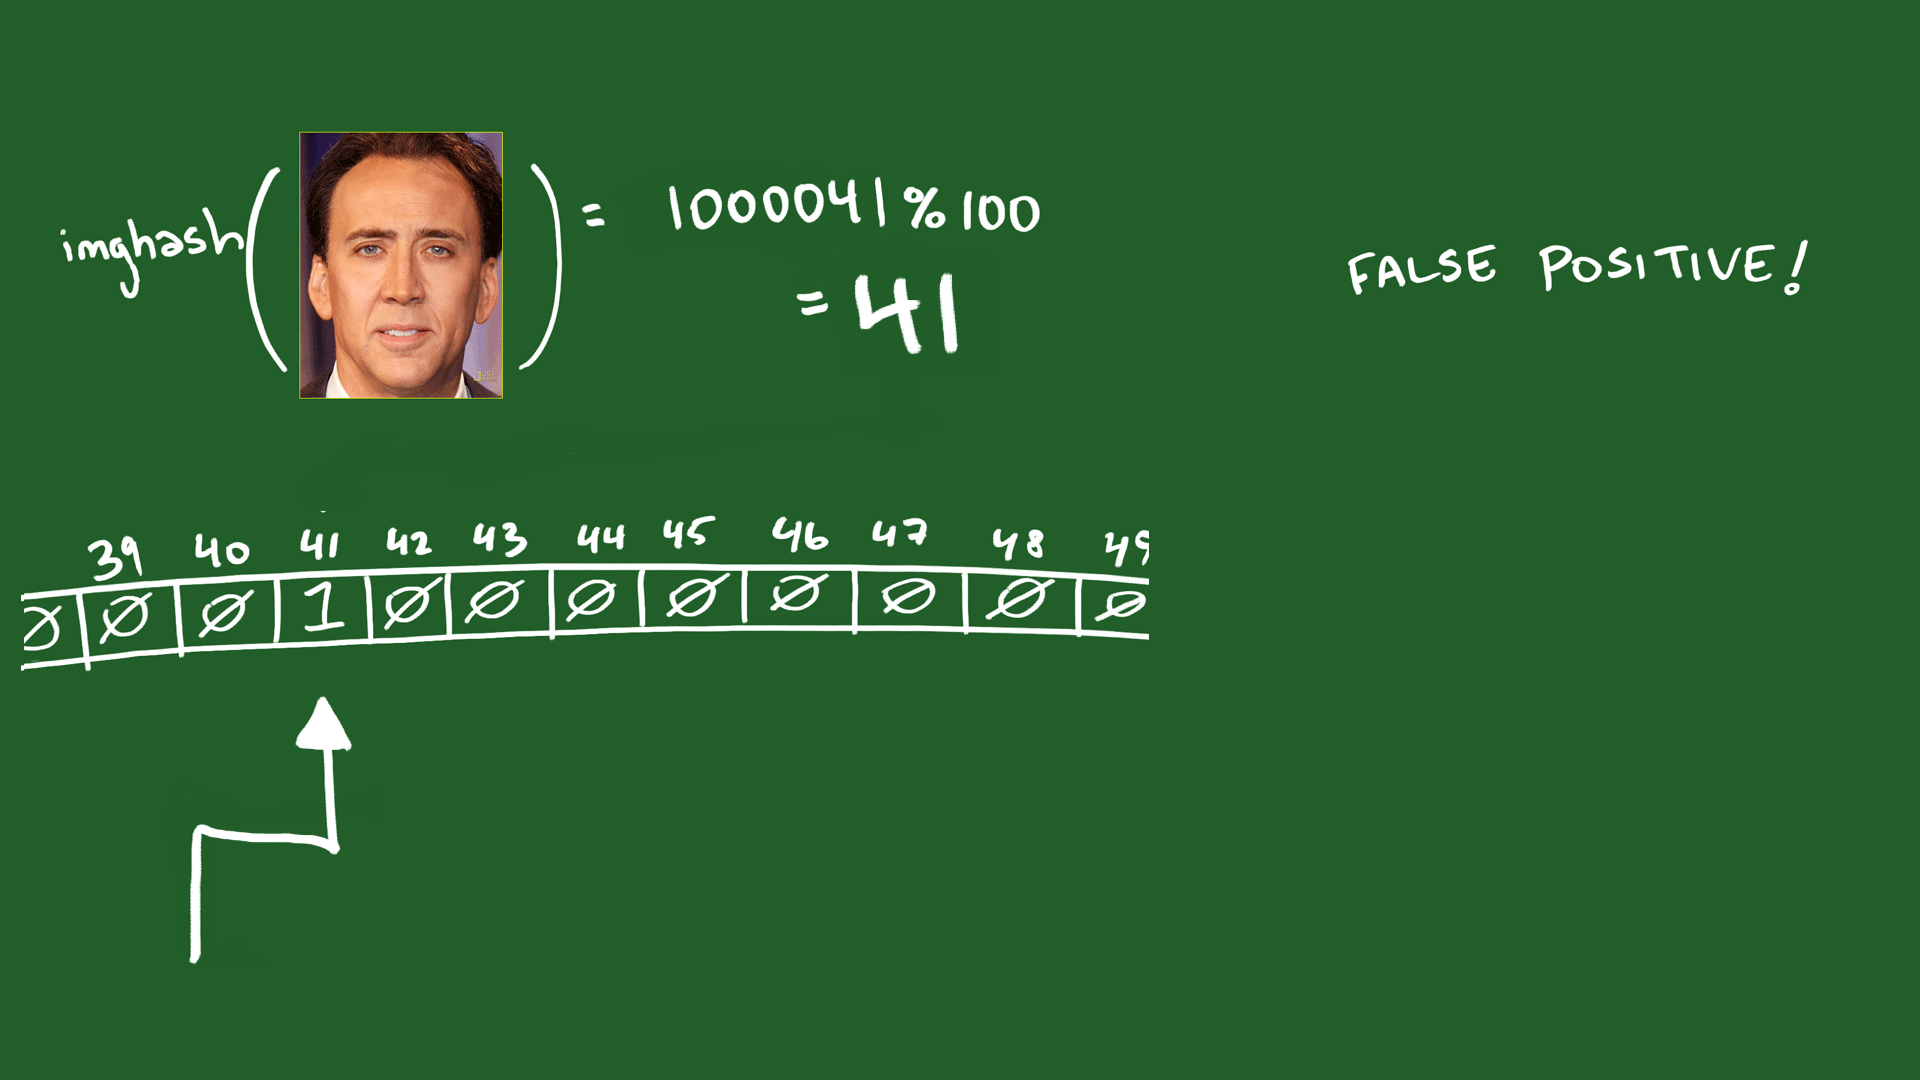 imghash( ) = 1000041 % 100
= 41
FALSE POSITIVE!
39 40 41 42 43 44 45 46 47 48 49
0 0 0 1 0 0 0 0 0 0 0 0